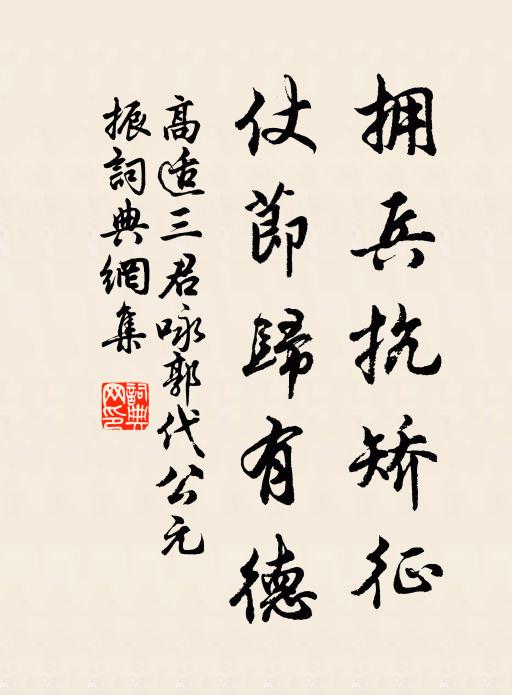 拥兵抗矫征
仗節歸有德
高适三君咏郭代公元
振詞典網集
詞典網印